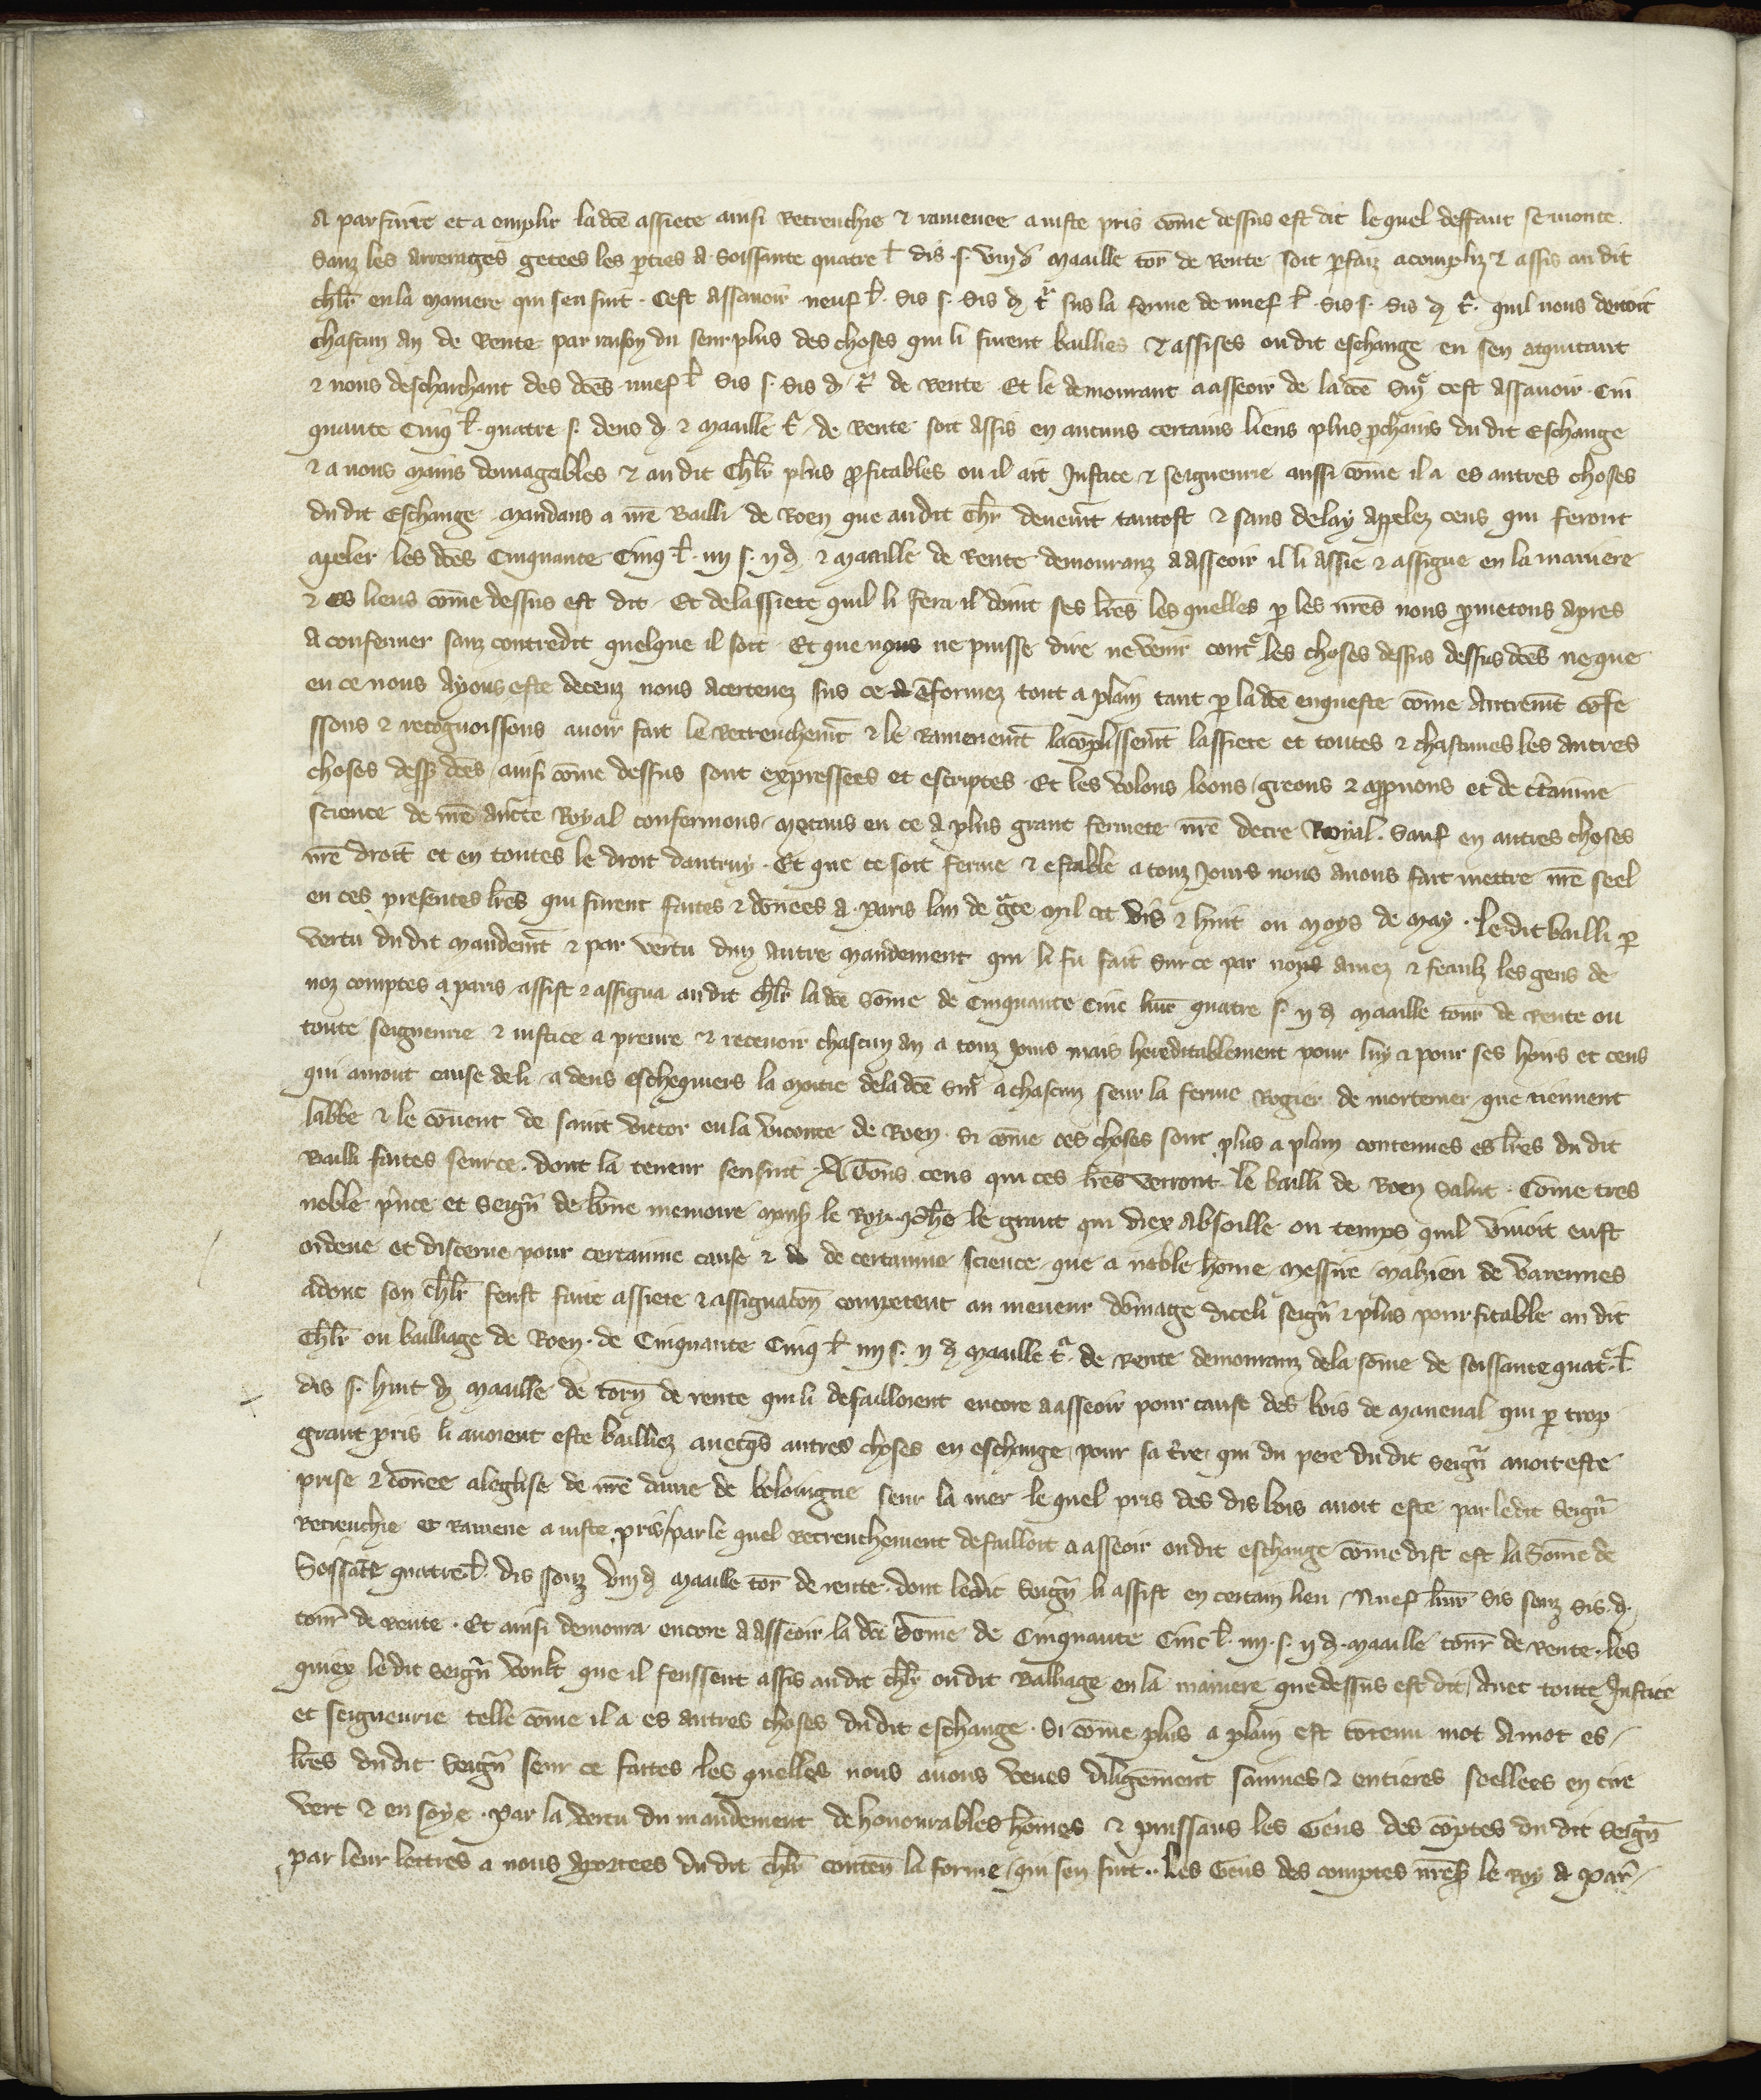 A parfaire et a emplir la dcē assiete ainsi Retrenchie ⁊ ramenee a iuste pris cōme dessus est dit le quel deffaut se monte
Sanz les arrerages getees les ꝑties a Soissante quatre l̃ dis .s. viijd maaille tor̃ de Rente soit ꝑfaiz acompliz ⁊ assis au dit
chlr̃ en la maniere qui sensuit . Cest assauoir neuf l̃ . Sis s. Sis d t̃ sus la ferme de nuef l̃ . Sis s. Sis d t̃ . quil nous deuoit
chascun an de Rente par raison du seurplus des choses qui li furent baillies ⁊ assises oudit eschange en sen aquitant
⁊ nous deschairhant des dcēs nuef l̃ Sis s. Sis d t̃ de Rente Et le demourant a asseoir de la dcē Sm̃e cest assauoir . Cin
quante Cinq l̃ . quatre s. deus d ⁊ maaille t̃ de Rente soit assis en aucuns certains lieus plus ꝓchains du dit Eschange
⁊ a nous mains domagables ⁊ au dit Chlr̃ plus ꝓfitables ou il ait Justice ⁊ seigneurie aussi cōme il a es autres choses
du dit Eschange mandans a nr̄e Bailli de Roen que au dit Chlr̃ deuem̃t tantost ⁊ sans delay apelez ceus qui feront
apeler les dcēs Cinquante Cinq l̃ . iiij s. ij d ⁊ maaille de Rente demouranz a asseoir il li assie ⁊ assigne en la maniere
⁊ es lieus cōme dessus est dit . Et de lassiete quil li fera il doint ses lr̄es les quelles ꝑ les nr̄es nous ꝓmetons apres
a confermer sanz contredit quelque il soit . Et que nous ne puisse dire ne venir cont̃ les choses dessus dessus dcēs ne que
en ce nous ayons este deceuz nous acertenez sus ce ēformez tout a plain tant ꝑ la dcē enqueste cōme Autrem̃t cōfe
ssons ⁊ recognoissons auoir fait le Retrenchem̃t ⁊ le Ramenem̃t lacōplissem̃t lassiete et toutes ⁊ chascunes les autres
choses dess᷒ dcēs / ainsi cōme dessus sont expressees et escriptes . Et les volons loons / greons ⁊ aꝓuuons et de c̃tainne
science de nr̄e aucte Royal confermons / metans en ce a plus grant fermete nr̄e decre Royal . Sauf en autres choses
nr̄e droit et en toutes le droit dautruy . Et que ce soit ferme ⁊ estable a touz Jours nous auons fait mettre nr̄e seel
en ces presentes lr̄es qui furent faites ⁊ dōnees a Paris lan de g̃ce mil ccc vīt ⁊ huit ou moys de may . Le dit bailli ꝑ
vertu du dit mandem̃t ⁊ par vertu dun autre mandement qui li fu fait sur ce par noz amez ⁊ feaulz les gens de
noz comptes a paris assist ⁊ assigna au dit chlr̃ la dcē sōme de Cinquante Cinc liur̃ quatre s. ij d maaille tour̃ de Rente ou
toute seigneurie ⁊ iustice a preure ⁊ receuoir chascun an a touz jours mais hereditablement pour luy ⁊ pour ses hoirs et ceus
qui auront cause de li . a deus eschequiers la moitie de la dcē sm̃e a chascun seur la ferme Rogier de mortemer que tiennent
labbe ⁊ le cōuent de saint victor en la viconte de Roen . Si cōme ces choses sont plus a plain contenues es lr̄es du dit
Bailli faites seur ce . dont la teneur sensuit . A Tous ceus qui ces lr̄es verront . le bailli de Roen Salut . Cōme tres
noble pr̃nce et Seign̄ de bōne memoire mons᷒ le Roy . ch̄e le grant qui diex absoille ou temps quil viuoit eust
ordene et discerne pour certainne cause ⁊ de certainne science . que a noble hōme messire mahieu de Varennes
adonc son chlr̃ feust faite assiete ⁊ assignacōn competent au meneur dōmage diceli seign̄ ⁊ plus pourfitable au dit
Chlr̃ ou bailliage de Roen . de Cinquante Cinq l̃ iiij s. ij d maaille t̃ . de Rente demouranz de la sōme de soissante quat̃ . l̃ .
dis s. huit d maaille de torn̄ de rente qui li defailloient encore a asseoir pour cause des bois de maneual qui ꝑ trop
grant pris li auoient este bailliez auecqs̃ autres choses en eschange pour sa t̃re qui du pere du dit seign̄ auoit este
prise ⁊ dōnee a leglise de nr̄e dame de boloingne seur la mer . le quel pris des dis bois auoit este par le dit Seign̄
retrenchie et Ramene a iuste pris / par le quel Retrenchement defailloit a asseoir oudit eschange cōme dist est la Sōme de
Soissāte quatre l̃ . dis souz viij d maaille tor̃ de rente . dont le dit Seign̄ li assist en certain lieu Nuef liur̃ sis souz sis .d.
tour̃ de rente . Et ainsi demoura encore a asseoir la dcē Sōme de Cinquante Cinc l̃ . iiij . s. ij d . maaille tour̃ de rente . les
quiex le dit seign̄ voult que il feussent assis au dit chlr̃ ou dit Balliage en la maniere que dessus est dit / auec toute Justice
et seigneurie telle cōme il a es autres choses du dit eschange . Si cōme plus a plain est cōtenu mot a mot es
lr̄es du dit Seign̄ seur ce faites . les quelles nous auons veues diligēment sainnes ⁊ entieres seellees en cire
vert ⁊ en soye . Par la vertu du mandement de honourables hōmes ⁊ puissans les Gens des cōptes du dit Seign̄
par leur lettres a nous aportees du dit chlr̃ conten̄ la forme qui sen suit .. Les Gens des comptes nr̄es᷒ le Roy a Par̃